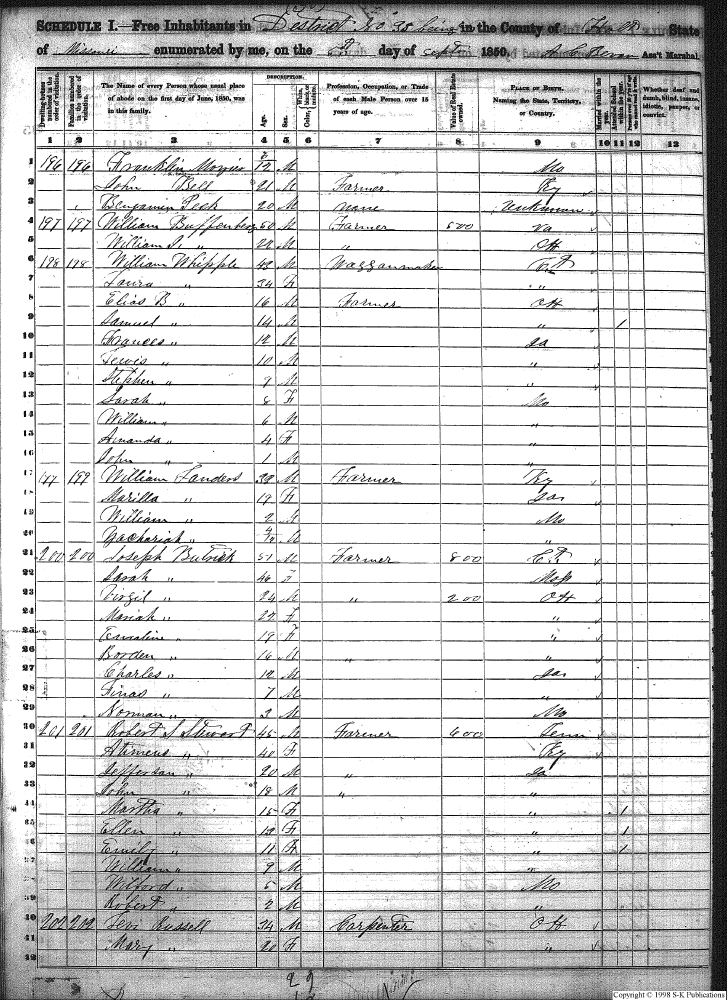 SCHEDULE I.—Free Inhabitants in District No 38 being in the County of Holt State
of Missouri enumerated by me, on the 2 day of Sept 1850. A. C. Bevan Ass't Marshal.
DESCRIPTION.
Dwelling-houses numbered in the order of visitation.
Families numbered in the order of visitation.
The Name of every Person whose usual place of abode on the first day of June, 1850, was in this family.
Age.
Sex.
White, black, or mulatto.
Color,
Profession, Occupation, or Trade of each Male Person over 15 years of age.
Value of Real Estate owned.
PLACE OF BIRTH. Naming the State, Territory, or Country.
Married within the year.
Attended School within the year.
Whether deaf and dumb, blind, insane, idiotic, pauper, or convict.
1 2 3 4 5 6 7 8 9 10 11 12 13
1 196 196 Franklin Morris /12 M Mo
2 John Bell 21 M Farmer Ky
3 Benjamin Peck 20 M none Unknown
4 197 197 William Buffenberg 50 M Farmer 500 Va
5 William J. " 22 M " OH
6 198 198 William Whipple 43 M Waggonmaker
7 Laura " 34 F "
8 Elias B " 16 M Farmer OH
9 Samuel " 14 M " 1
10 Frances " 12 M Ia
11 Lewis " 10 M "
12 Stephen " 9 M "
13 Sarah " 8 F Mo
14 William " 6 M "
15 Amanda " 4 F "
John " 1 M "
199 William Landers 30 M Farmer Ky
Marilla " 19 F
19 William " 2 M Mo
20 Zachariah " M "
21 200 200 Joseph Butrick 51 M Farmer 800 CT
22 Sarah " 46 F Mass
23 Virgil " 24 M " 200 OH
24 Mariah " 22 F "
25 Emaline " 19 F "
26 Borden " 16 M " "
27 Charles " 12 M
28 " 7 M "
29 Norman " 3 M Mo
30 201 201 Robert S Stewart 45 M Farmer 600 Tenn
31 " 40 F Ky
32 Jefferson " 20 M " Ia
John " 18 M " "
Martha " 15 F " 1
Ellen " F " 1
Emily " 11 F " 1
William " 9 M "
Wilford " 5 M Mo
Robert " 2 M "
202 202 Levi Russell 34 M Carpenter OH
Mary " 20 F "
Copyright © 1998 S-K Publications